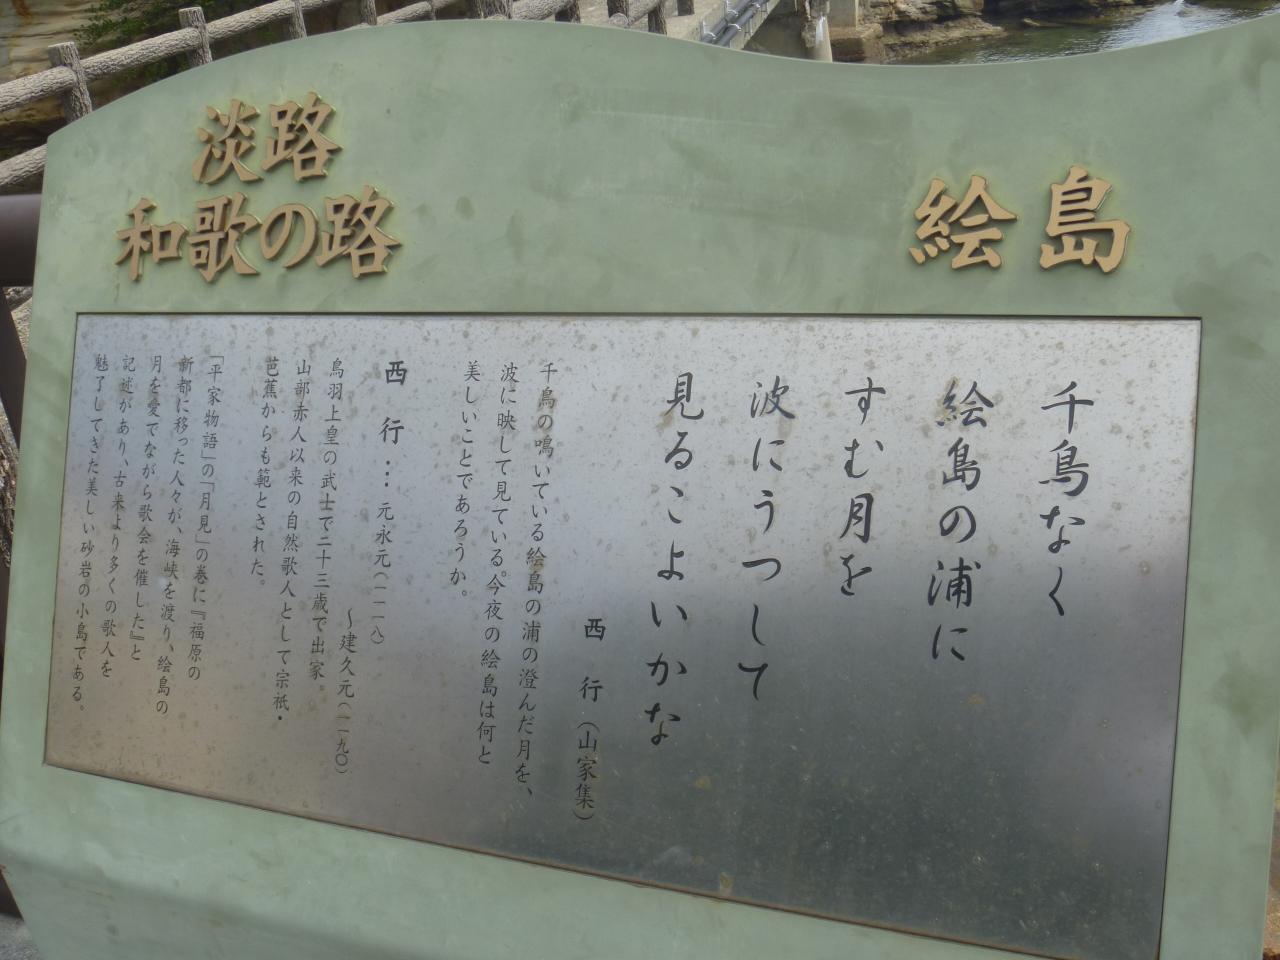 淡路
和歌の路
絵島
千鳥なく
絵島の浦に
すむ月を
波にうつして
見るこよいかな
西行（山家集）
千鳥の鳴いている絵島の浦の澄んだ月を、
波に映して見ている。今夜の絵島は何と
美しいことであろうか。
西行…元永元（一一一八）
～建久元（一一九〇）
鳥羽上皇の武士で二十三歳で出家。
山部赤人以来の自然歌人として宗祇・
芭蕉からも範とされた。
「平家物語」の「月見」の巻に『福原の
新都に移った人々が、海峡を渡り、絵島の
月を愛でながら歌会を催した』と
記述があり、古来より多くの歌人を
魅了してきた美しい砂岩の小島である。